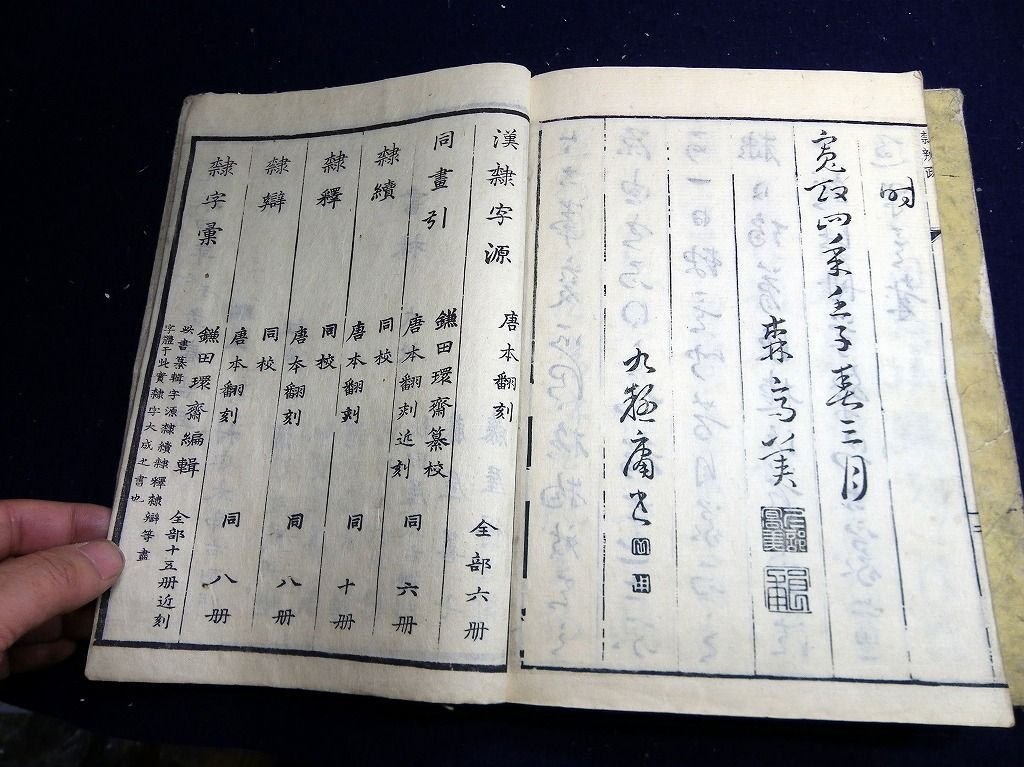 時
寛政四年壬子春三月
森高美
九毬庸書
漢隷字源 唐本翻刻 全部六册
同畫引 鎌田環齋纂校
隷續 唐本翻刻近刻 同六册
隷釋 同校 唐本翻刻 同十册
隷辯 同校 唐本翻刻 同八册
同校
隷字彙 唐本翻刻 同八册
鎌田環齋編輯 全部十五册近刻
此書纂輯字源隷續隷釋隷辯等畫
字體于此實隷字大成之書也